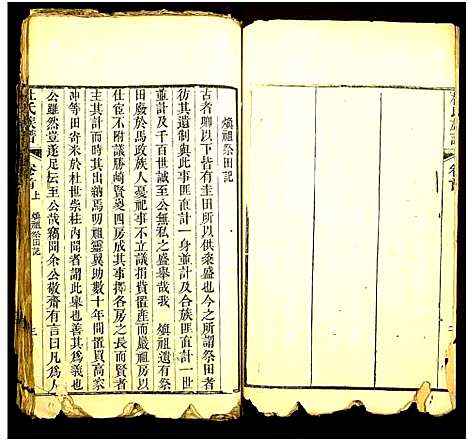 氏族譜 卷首
煥祖祭田記
古者卿以下皆有圭田所以供粢盛也今之所謂祭田者
彷其遺制與此事匪直計一身並計及合族匪直計一世
並計及千百世至公無私之盛舉哉我 煥祖遺有祭
田廢於馬政族人憂祀事不立議捐貲置產而嚴祖房以
仕宦不附議勝崎賢夔四房成其事擇各房之長而賢者
主計而其年大饑為叨祖靈翼助數十年間置買高家
冲等田寄米於杜世崇柱內闻者謂此舉也善其為義也
公雖然豈遂足云至公哉竊聞余公敬齋有言曰凡為人
杜氏族譜 卷首上 煥祖祭田記 三